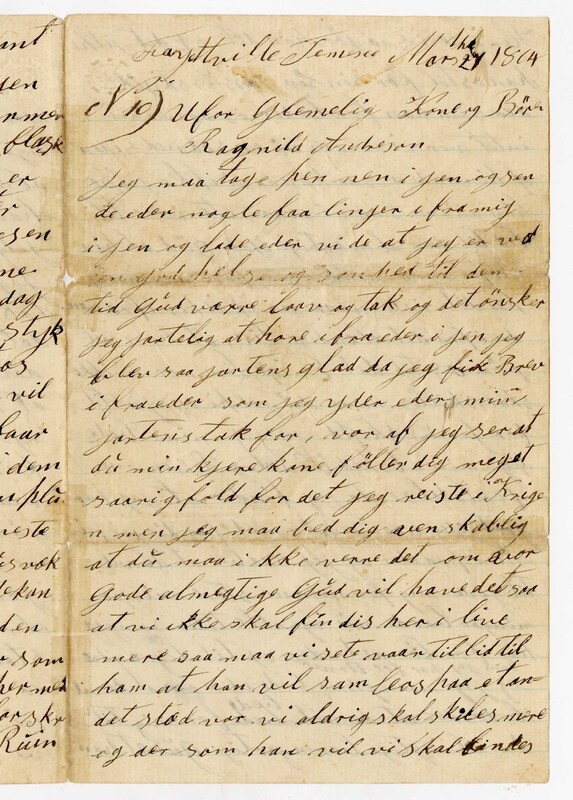 ant
en
nmer
flæsk
er
r
sen
ne
dag
styk
os
vil
faar
dem
plu
veste
væk
kan
den
som
her med
for skr
Ruin
Faythville Temese Mars the 27 1864
No 10) Ufor Glemelig Kone og Börn
Ragnild Andreson
jeg maa tage pen nen i jen og sen
de eder nogle faa linjer ifra mig
i jen og lade eder vi de at jeg er ved
en god hel se og son hed til den
tid Gud værre laav og tak og det önsker
jeg jartelig at hore ifra eder i jen jeg
blev saa jartens glad da jeg fik Brev
i fra eder som jeg yder eders min
jartens tak for, vor af jeg ser at
du min kjere kone föller dig meget
saarig fold for det jeg reiste i Krige
n men jeg maa bed dig venskablig
at du maa i kke verre det om vor
Gode almegtige Gud vil have det saa
at vi ikke skal findis her i live
mere saa maa vi sete vaar til lid til
ham at han vil samle os paa et an=
det stæd vor vi aldrig skal skilles mere
og der som han vil vi skal findes